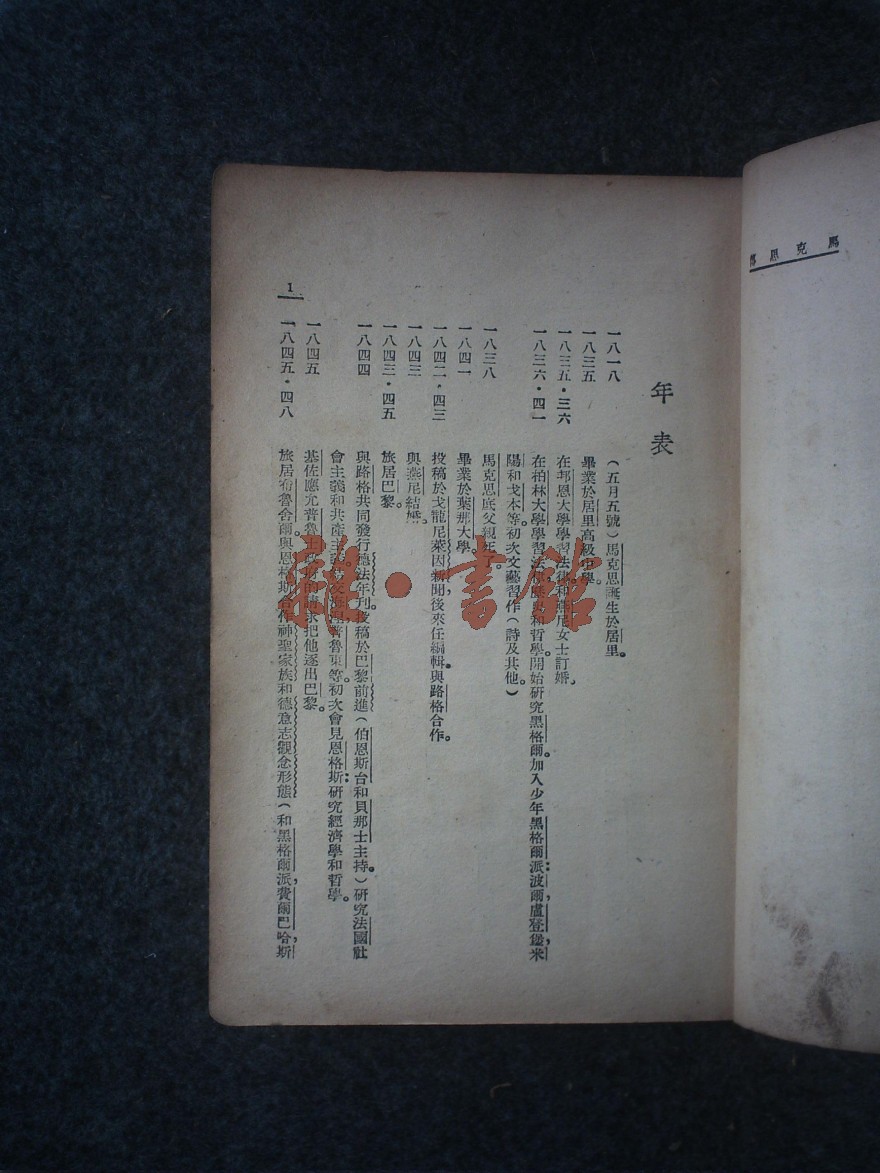 馬克思
年表
一八一八 （五月五號）馬克思誕生於居里。
一八三五 畢業於居里高級中學。
一八三五・三六 在邦恩大學學習法律和燕尼女士訂婚。
一八三六・四一 在柏林大學學習法律歷史和哲學。開始研究黑格爾。加入少年黑格爾派：波爾，盧登堡，米
陽和戈本等。初次文藝習作（詩及其他。）
一八三八 馬克思底父親死了。
一八四一 畢業於葉那大學。
一八四二・四三 投稿於戈龍尼萊因新聞後來任編輯。與路格合作。
一八四三 與燕尼結婚。
一八四三・四五 旅居巴黎。
一八四四 與路格共同發行德法年刊。投稿於巴黎前進（伯恩斯台和貝那士主持。）研究法國社
會主義和共產主義 普魯東等。初次會見恩格斯：研究經濟學和哲學。
一八四五 基佐應允普魯士政府的請求把他逐出巴黎。
一八四五・四八 旅居布魯舍爾與恩格斯合作神聖家族和德意志觀念形態（和黑格爾派，費爾巴哈，斯
1
雜・書館